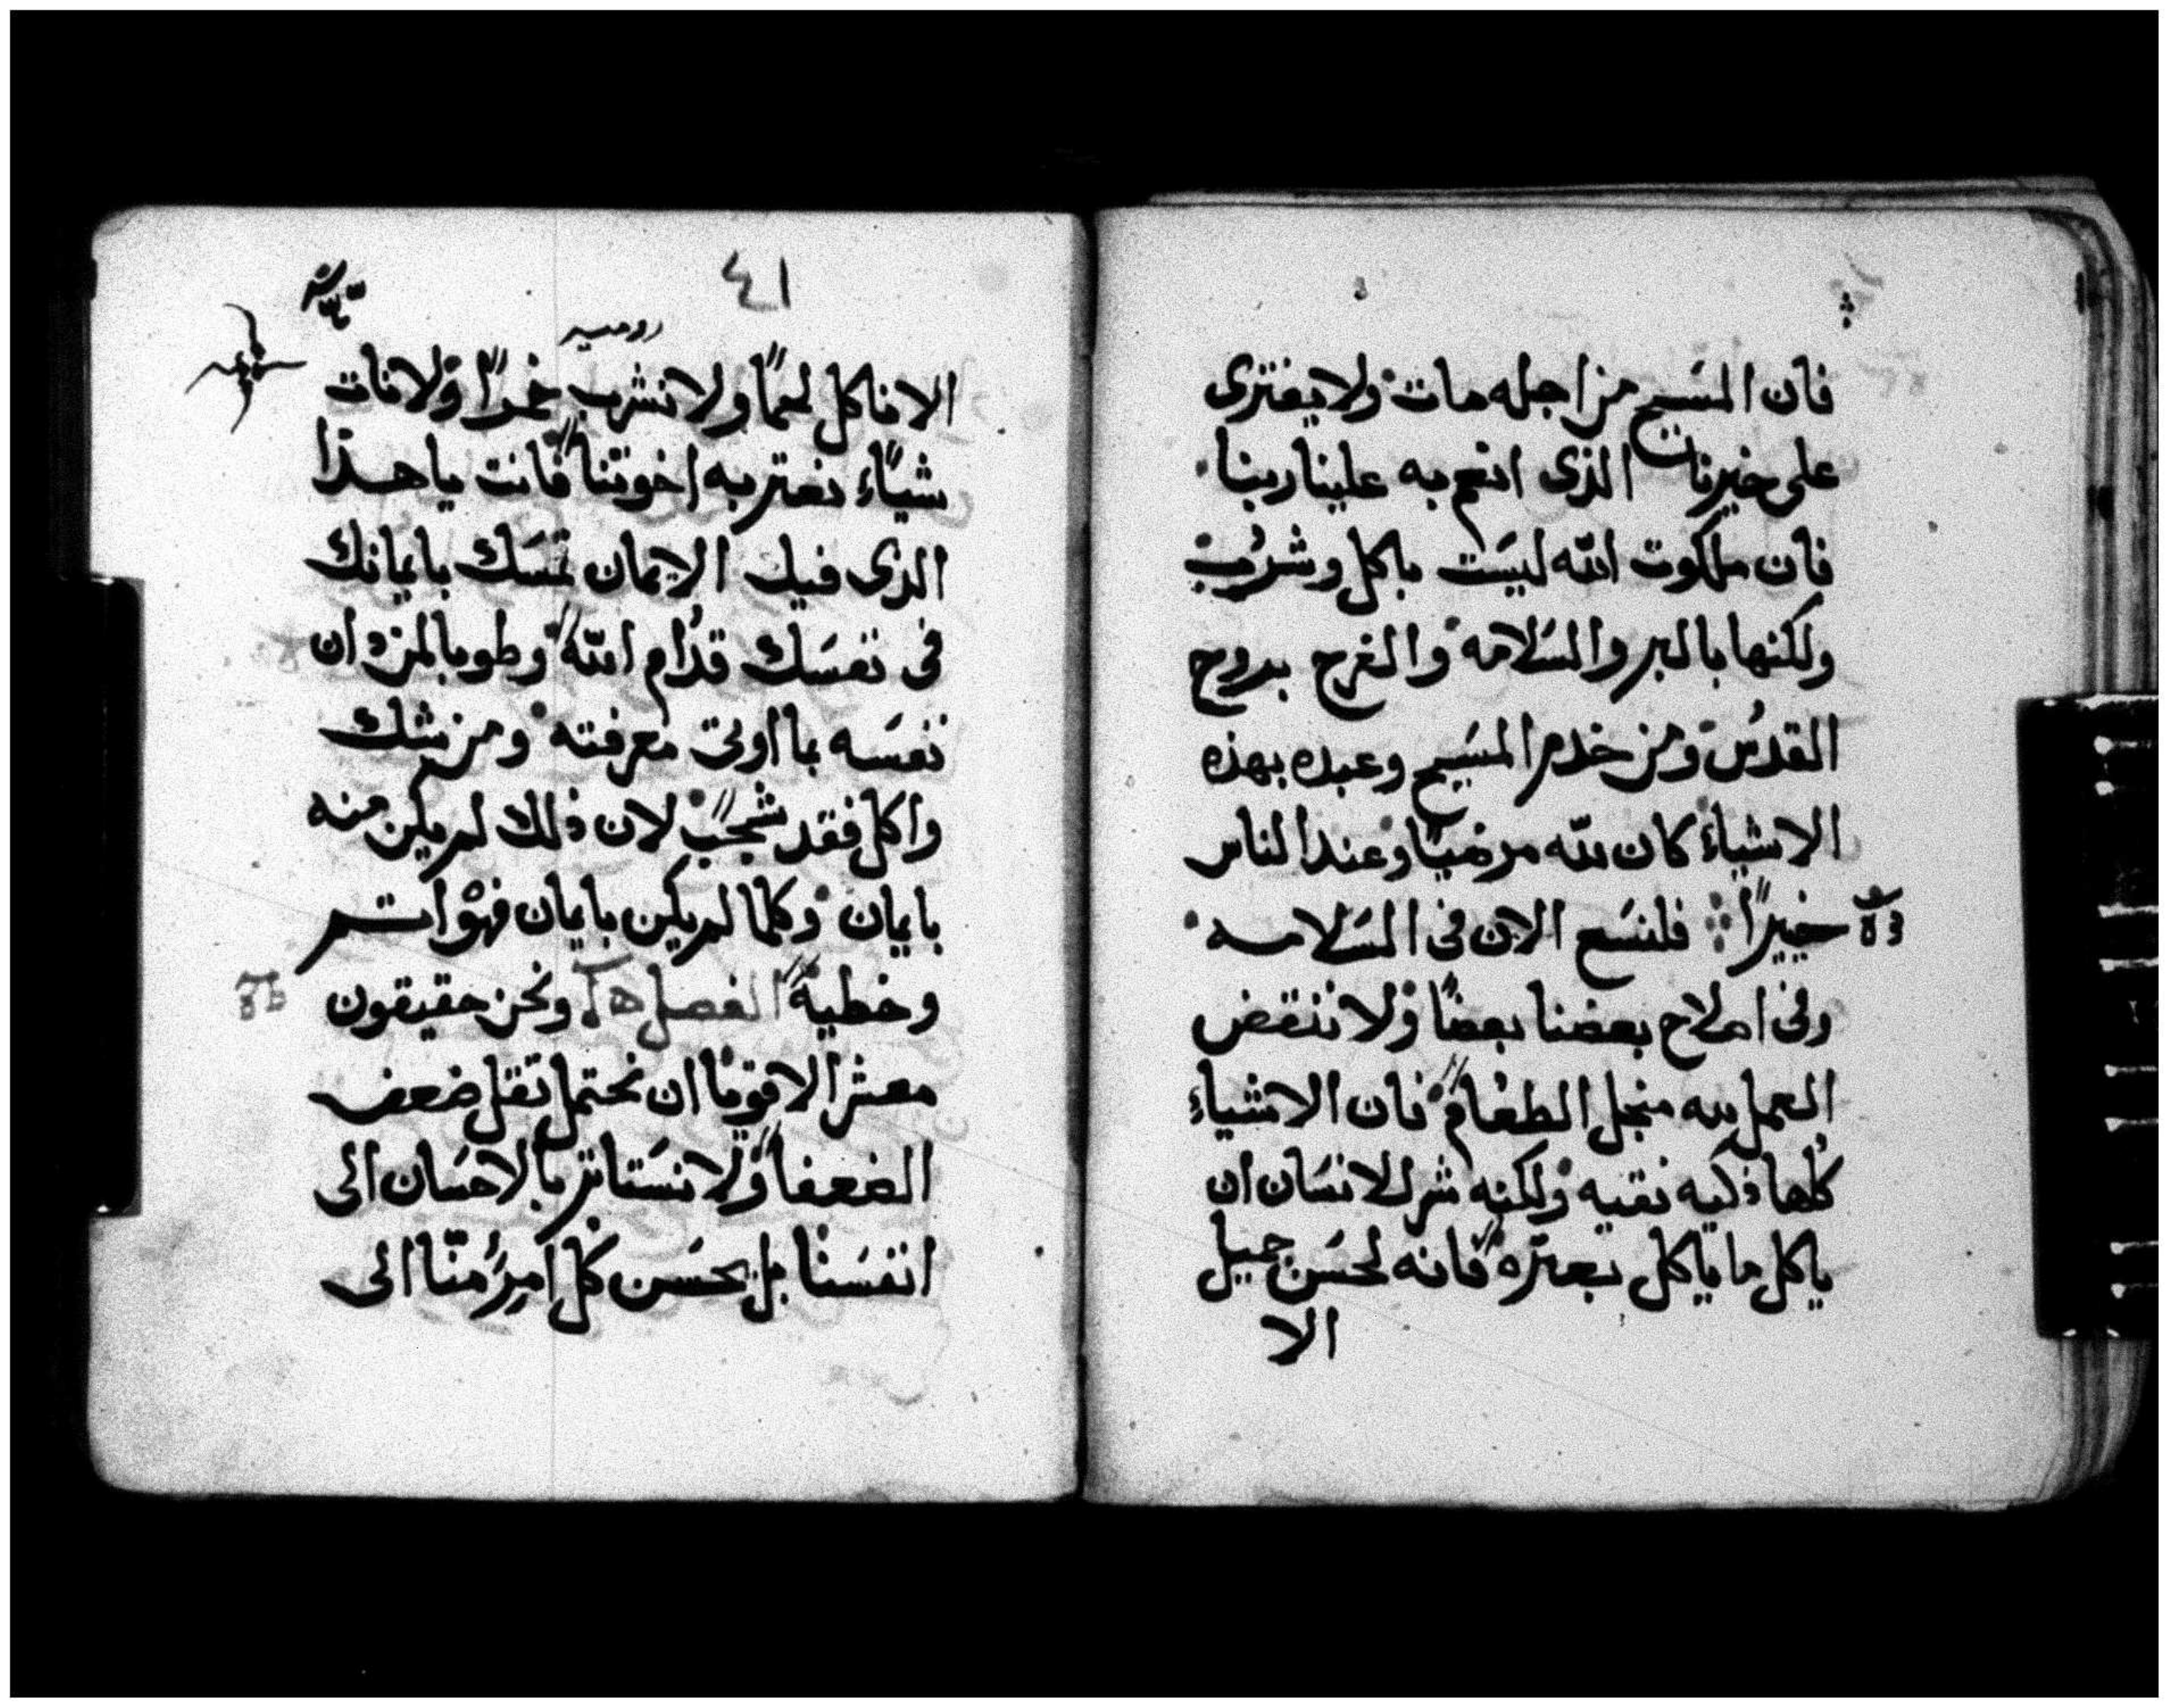 فان المسَيح من اجله مات ولا يفترى
على خيرنا الذى انعم به علينا ربنا
فان ملكوت الله ليسَت باكل وشرُب
ولكنها بالبر والسَلامه والفرح بروح
القدُس ومن خدم المسَيح وعبده بهذه
الاشياءَ كان لله مرضيًا وعند الناس
خييرًا فلنسَع الان فى السَلامه
وفى اصلاح بعضنا بعضًا ولا ننقض
العمل لله منجل الطعُام فان الاشياء
كُلها ذكيه نقيه ولكنه شر للانسَان ان
ياكل ما ياكل بعثره فانه لحسَن جميل
الا
٤١
روميه
الا ناكل لحمًا ولا نشرب خمرًا ولا نات
شيًاء نعثر به اخوتنا فانت يا هذا
الذى فيك الايمان تمسَك بايمانك
فى نفسَك قدُام الله وطوبا لمن دان
نفسَه بما اوتى معرفته ومن يشك
واكل فقد شجَب لان ذلك لم يكن منه
بايمان وكلما لم يكن بايمان فهْو اثم
وخطيه الفصل ونحن حقيقون
معشر الاقويا ان نحتمل ثقل ضعف
الضعفا ولا نسَتاثر بالاحسَان الى
انفسَنا بل يحسَن كل امرُ منّا الى